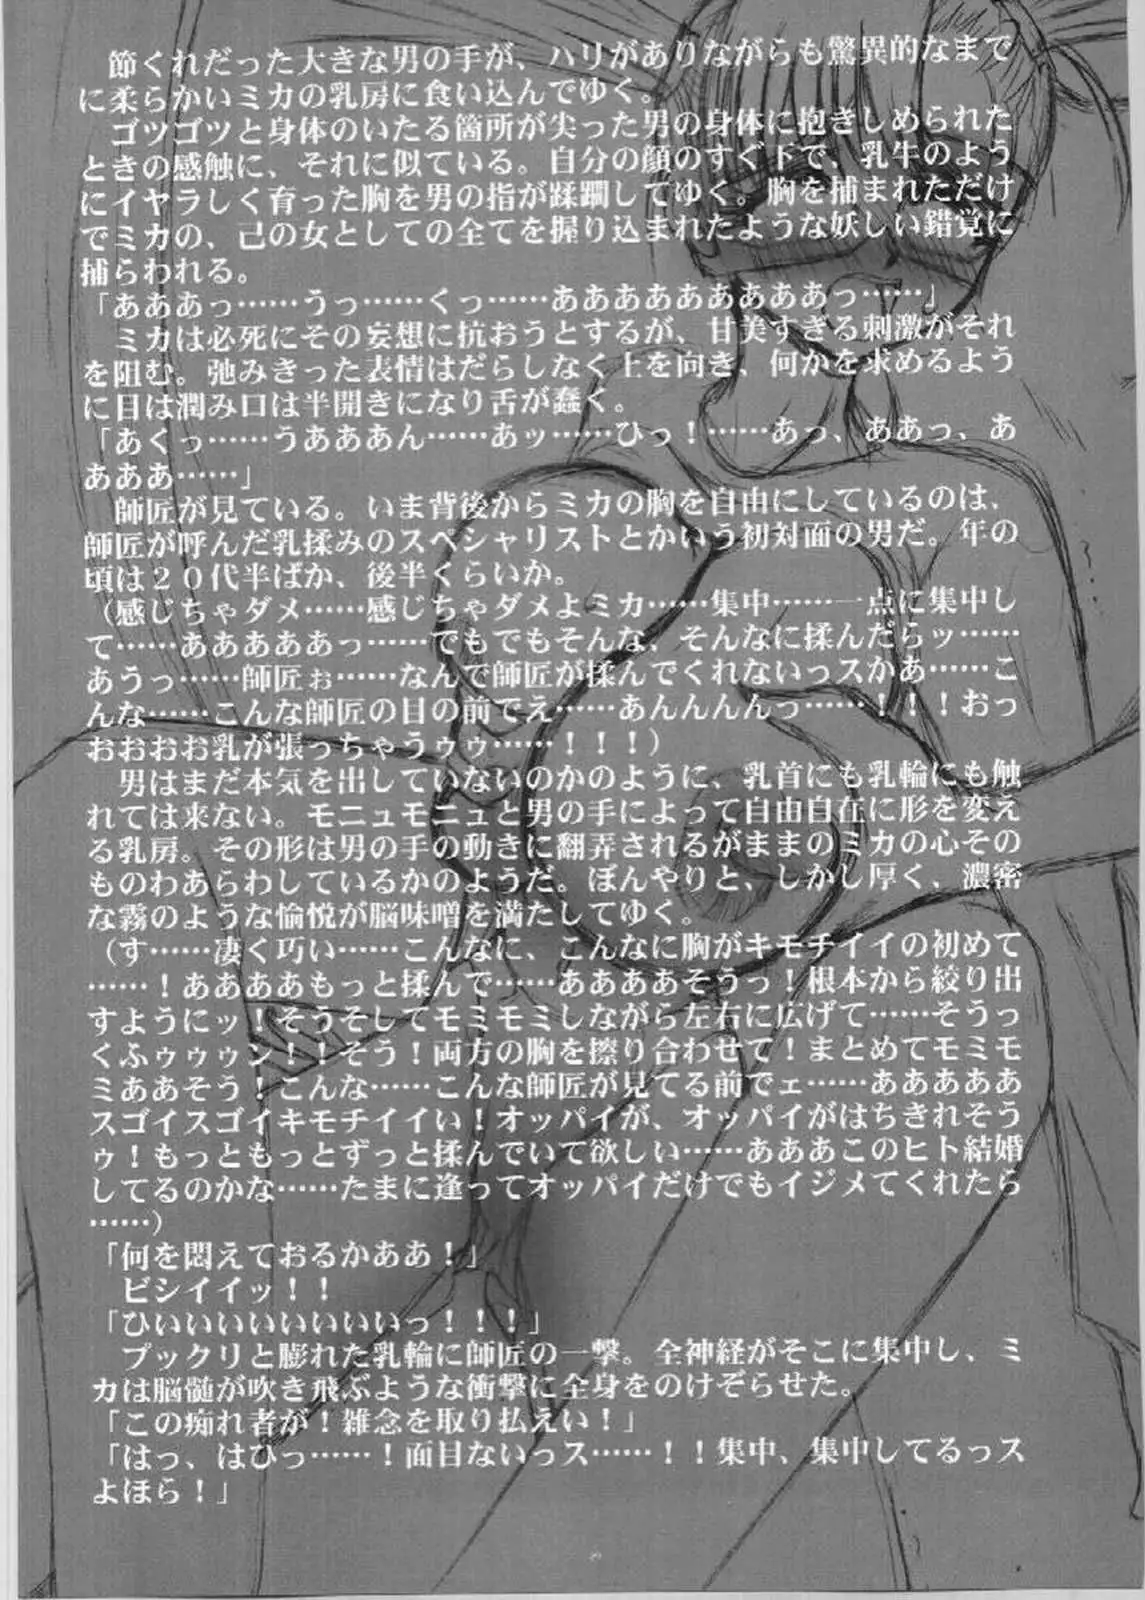 節くれだった大きな男の手が、ハリがありながらも驚異的なまで
に柔らかいミカの乳房に食い込んでゆく。
ゴツゴツと身体のいたる箇所が尖った男の身体に抱きしめられた
ときの感触に、それに似ている。自分の顔のすぐ下で、乳牛のよう
にイヤラしく育った胸を男の指が蹂躙してゆく。胸を捕まれただけ
でミカの、己の女としての全てを握り込まれたような妖しい錯覚に
捕らわれる。
「あああっ……うっ……くっ……ああああああああああっ……」
ミカは必死にその妄想に抗おうとするが、甘美すぎる刺激がそれ
を阻む。弛みきった表情はだらしなく上を向き、何かを求めるよう
に目は潤み口は半開きになり舌が蠢く。
「あくっ……うあああん……あッ……ひっ！……あっ、ああっ、あ
あああ……」
師匠が見ている。いま背後からミカの胸を自由にしているのは、
師匠が呼んだ乳揉みのスペシャリストとかいう初対面の男だ。年の
頃は２０代半ばか、後半くらいか。
（感じちゃダメ……感じちゃダメよミカ……集中……一点に集中し
て……ああああああっ……でもでもそんな、そんなに揉んだらッ……
あうっ……師匠ぉ……なんで師匠が揉んでくれないっスかあ……こ
んな……こんな師匠の目の前でえ……あんんんんっ……！！！おっ
おおおおお乳が張っちゃうゥゥ……！！！）
男はまだ本気を出していないのかのように、乳首にも乳輪にも触
れては来ない。モニュモニュと男の手によって自由自在に形を変え
る乳房。その形は男の手の動きに翻弄されるがままのミカの心その
ものわあらわしているかのようだ。ぼんやりと、しかし厚く、濃密
な霧のような愉悦が脳味噌を満たしてゆく。
（す……凄く巧い……こんなに、こんなに胸がキモチイイの初めて
……！あああああもっと揉んで……ああああそうっ！根本から絞り出
すようにッ！そうそしてモミモミしながら左右に広げて……そうっ
くふゥゥゥン！！そう！両方の胸を擦り合わせて！まとめてモミモ
ミああそう！こんな……こんな師匠が見てる前でェ……あああああ
スゴイスゴイキモチイイい！オッパイが、オッパイがはちきれそう
ゥ！もっともっとずっと揉んでいて欲しい……あああこのヒト結婚
してるのかな……たまに逢ってオッパイだけでもイジメてくれたら
……）
「何を悶えておるかああ！」
ビシイイッ！！
「ひいいいいいいいいっ！！！」
プックリと膨れた乳輪に師匠の一撃。全神経がそこに集中し、ミ
カは脳髄が吹き飛ぶような衝撃に全身をのけぞらせた。
「この痴れ者が！雑念を取り払えい！」
「はっ、はひっ……！面目ないっス……！！集中、集中してるっス
よほら！」